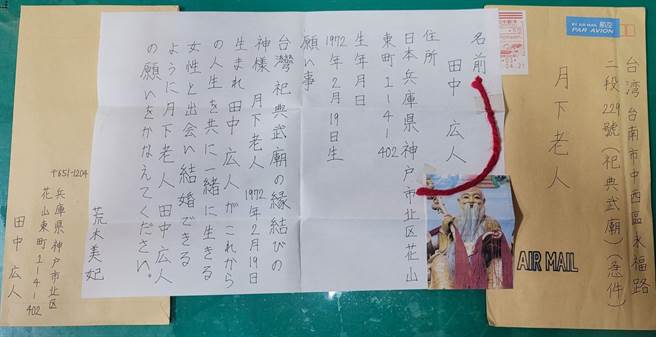 BY AIR MAIL
航空
PAR AVION
台湾 台南市中西區永福路
二段229號(祀典武廟)(急件)
月下老人
AIR MAIL
名前
田中 広人
住所
日本兵庫県神戸市北区花山
東町1-4-402
生年月日
1972年2月19日生
願い事
台灣 祀典武廟の縁結びの
神様 月下老人 1972年2月19日
生まれ 田中 広人がこれから
の人生を共に一緒に生きる
女性と出会い結婚できる
ように月下老人 田中 広人
の願いをかなえてください。
荒木美妃
〒651-1204
兵庫県神戸市北区
花山東町1-4-402
田中 広人